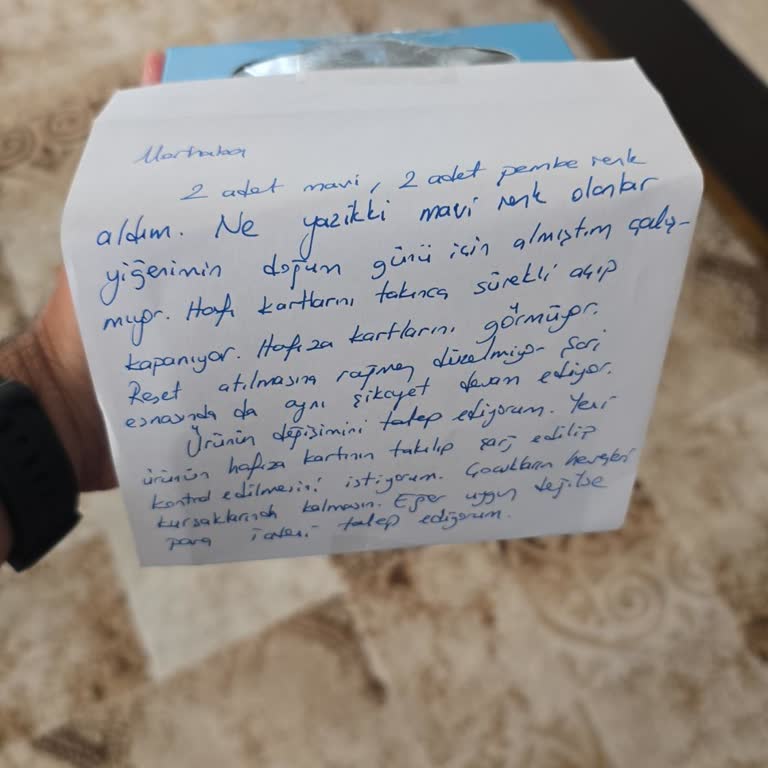 Merhaba
2 adet mavi, 2 adet pembe renk
aldım. Ne yazikki mavi renk olanlar
yiğenimin doğum günü için almıştım çalış-
mıyor. Hafı kartlarını takınca sürekli açıp
kapanıyor. Hafıza kartlarını görmüyor.
Reset atılmasına rağmen düzelmiyor Şarj
esnasında da aynı şikayet devam ediyor.
Ürünün değişimini talep ediyorum. Yeni
ürünün hafıza kartının takılıp şarj edilip
kontrol edilmesini istiyorum. Çocukların hevesleri
kursaklarında kalmasın. Eğer uygun değilse
para iadesi talep ediyorum.